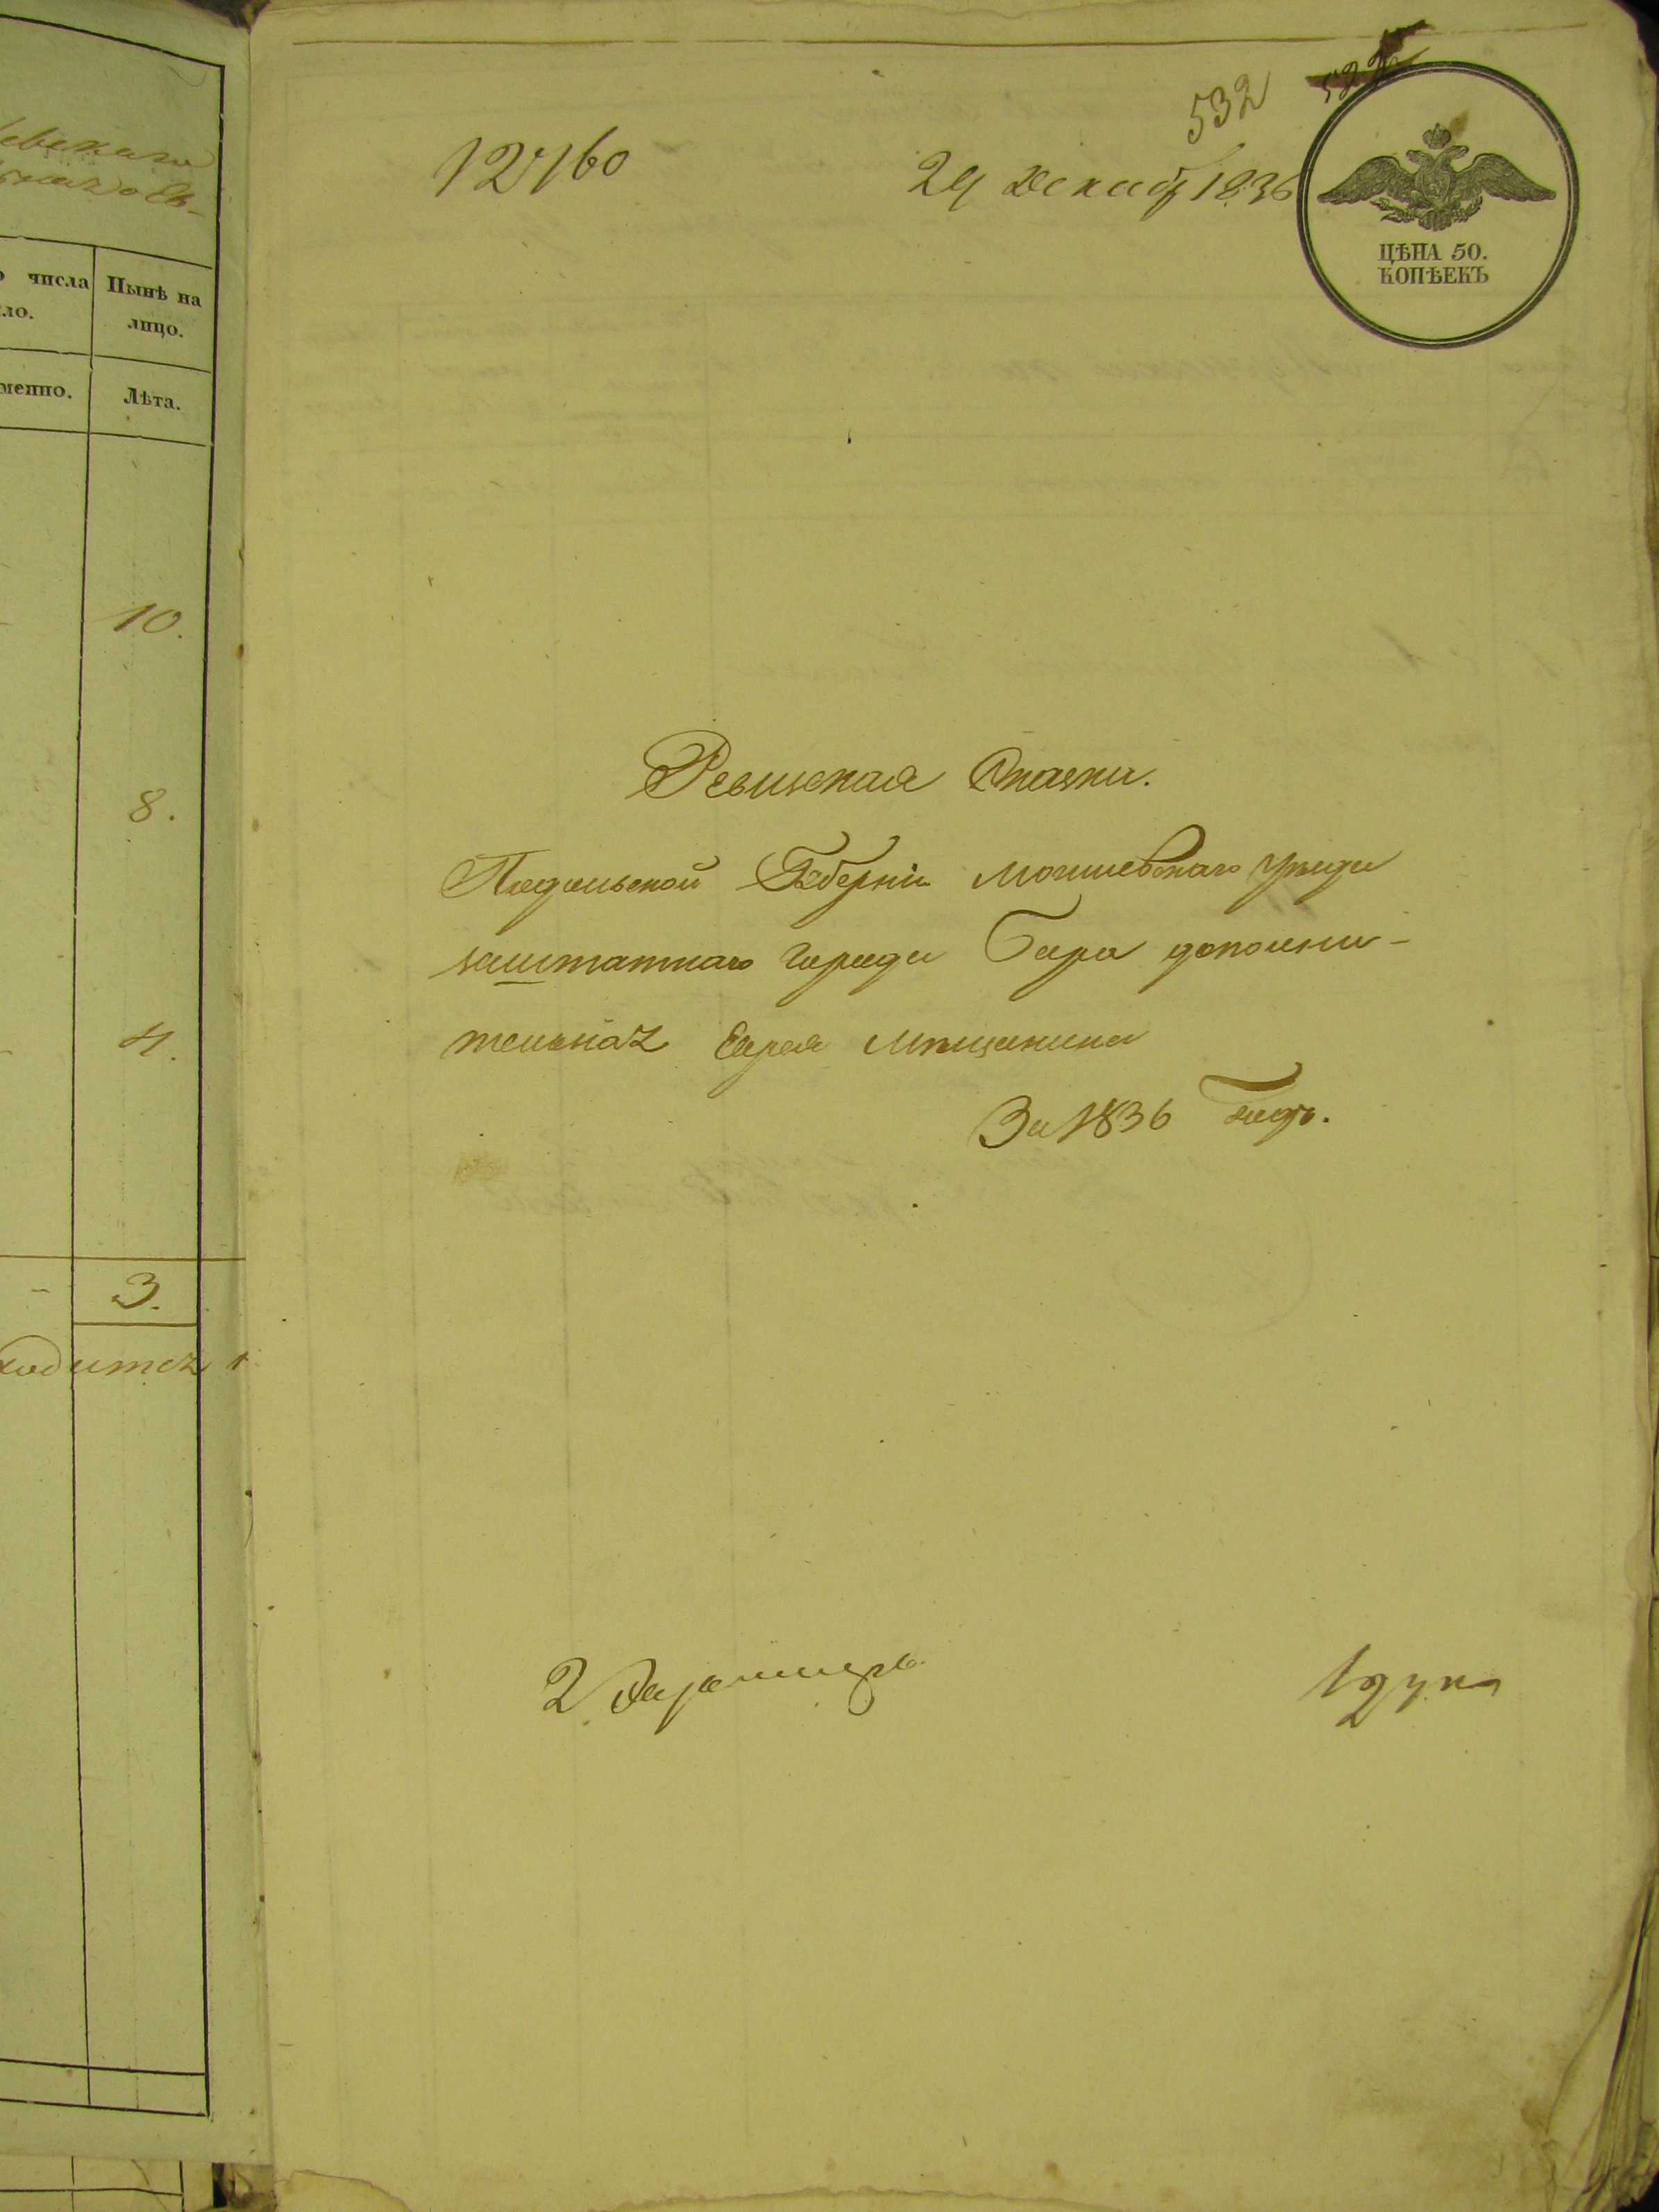 евскаго
числа
ло.
Нынѣ на
лицо.
менно.
Лѣта.
10.
8.
4.
3.
ходится
532
12760
29 декаб 1836
ЦѢНА 50.
КОПѢЕКЪ
Ревиская Сказка.
Подольской Губерніи Могилевскаго Уезда
заштатнаго города Бара дополни-
тельная Еврея Мѣщанина
За 1836 годъ.
2
1 душ